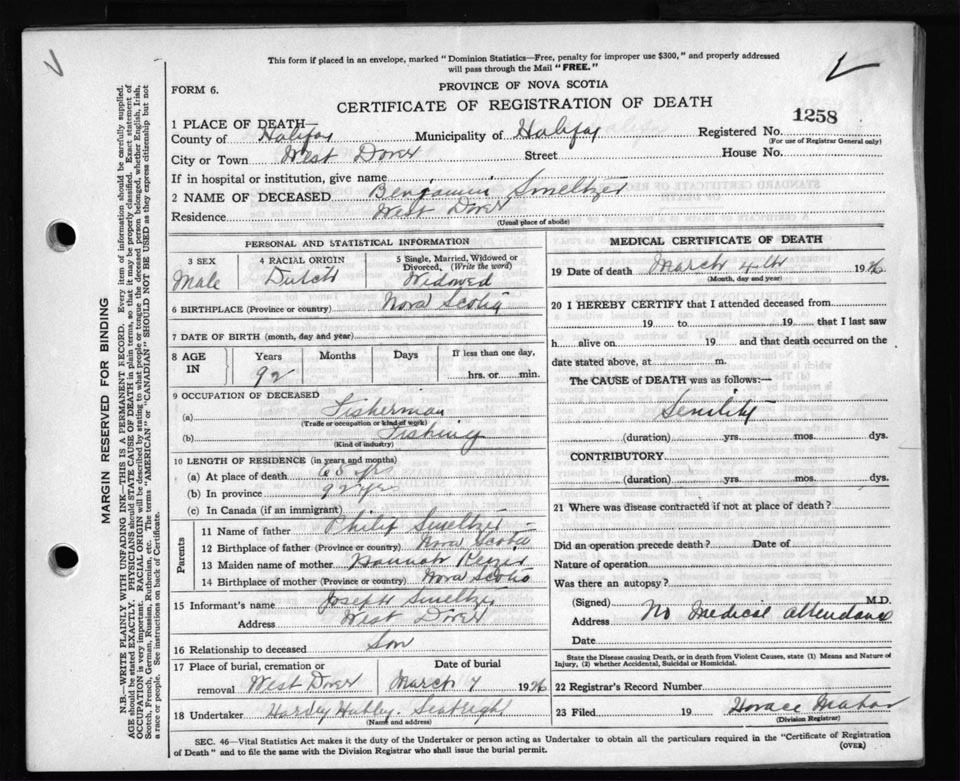 This form if placed in an envelope, marked "Dominion Statistics—Free, penalty for improper use $300," and properly addressed
will pass through the Mail "FREE."
FORM 6.
PROVINCE OF NOVA SCOTIA
CERTIFICATE OF REGISTRATION OF DEATH
1258
1 PLACE OF DEATH
County of Halifax Municipality of Halifax Registered No.
(For use of Registrar General only)
City or Town West Dover Street House No.
If in hospital or institution, give name
2 NAME OF DECEASED Benjamin Smeltzer
Residence West Dover
(Usual place of abode)
PERSONAL AND STATISTICAL INFORMATION
3 SEX 4 RACIAL ORIGIN 5 Single, Married, Widowed or
Divorced, (Write the word)
Male Dutch Widowed
6 BIRTHPLACE (Province or country) Nova Scotia
7 DATE OF BIRTH (month, day and year)
8 AGE IN Years Months Days If less than one day,
92 hrs. or min.
9 OCCUPATION OF DECEASED
(a) Fisherman
(Trade or occupation or kind of work)
(b) Fishing
(Kind of industry)
10 LENGTH OF RESIDENCE (in years and months)
(a) At place of death yrs
(b) In province 92 yrs
(c) In Canada (if an immigrant)
Parents
11 Name of father Philip Smeltzer
12 Birthplace of father (Province or country) Nova Scotia
13 Maiden name of mother Hannah
14 Birthplace of mother (Province or country) Nova Scotia
15 Informant's name Joseph Smeltzer
Address West Dover
16 Relationship to deceased Son
17 Place of burial, cremation or Date of burial
removal West Dover March 7 19
18 Undertaker Harvey Hubley. Seabright
(Name and address)
MEDICAL CERTIFICATE OF DEATH
19 Date of death March 4th 19
(Month, day and year)
20 I HEREBY CERTIFY that I attended deceased from
19 to 19 that I last saw
h alive on 19 and that death occurred on the
date stated above, at m.
The CAUSE of DEATH was as follows:—
Senility
(duration) yrs. mos. dys.
CONTRIBUTORY
(duration) yrs. mos. dys.
21 Where was disease contracted if not at place of death?
Did an operation precede death? Date of
Nature of operation
Was there an autopsy?
(Signed) M.D.
Address No medical attendance
Date
State the Disease causing Death, or in death from Violent Causes, state (1) Means and Nature of
Injury, (2) whether Accidental, Suicidal or Homicidal.
22 Registrar's Record Number
23 Filed 19 Horace
(Division Registrar)
SEC. 46—Vital Statistics Act makes it the duty of the Undertaker or person acting as Undertaker to obtain all the particulars required in the "Certificate of Registration
of Death" and to file the same with the Division Registrar who shall issue the burial permit. (OVER)
MARGIN RESERVED FOR BINDING
N.B.—WRITE PLAINLY WITH UNFADING INK—THIS IS A PERMANENT RECORD. Every item of information should be carefully supplied.
AGE should be stated EXACTLY. PHYSICIANS should STATE CAUSE OF DEATH in plain terms, so that it may be properly classified. Exact statement of
OCCUPATION is very important. RACIAL ORIGIN will be described by stating to what people or tongue the deceased person belonged, whether English, Irish,
Scotch, French, German, Russian, Ruthenian, etc. The terms "AMERICAN" or "CANADIAN" SHOULD NOT BE USED as they express citizenship but not
a race or people. See instructions on back of Certificate.